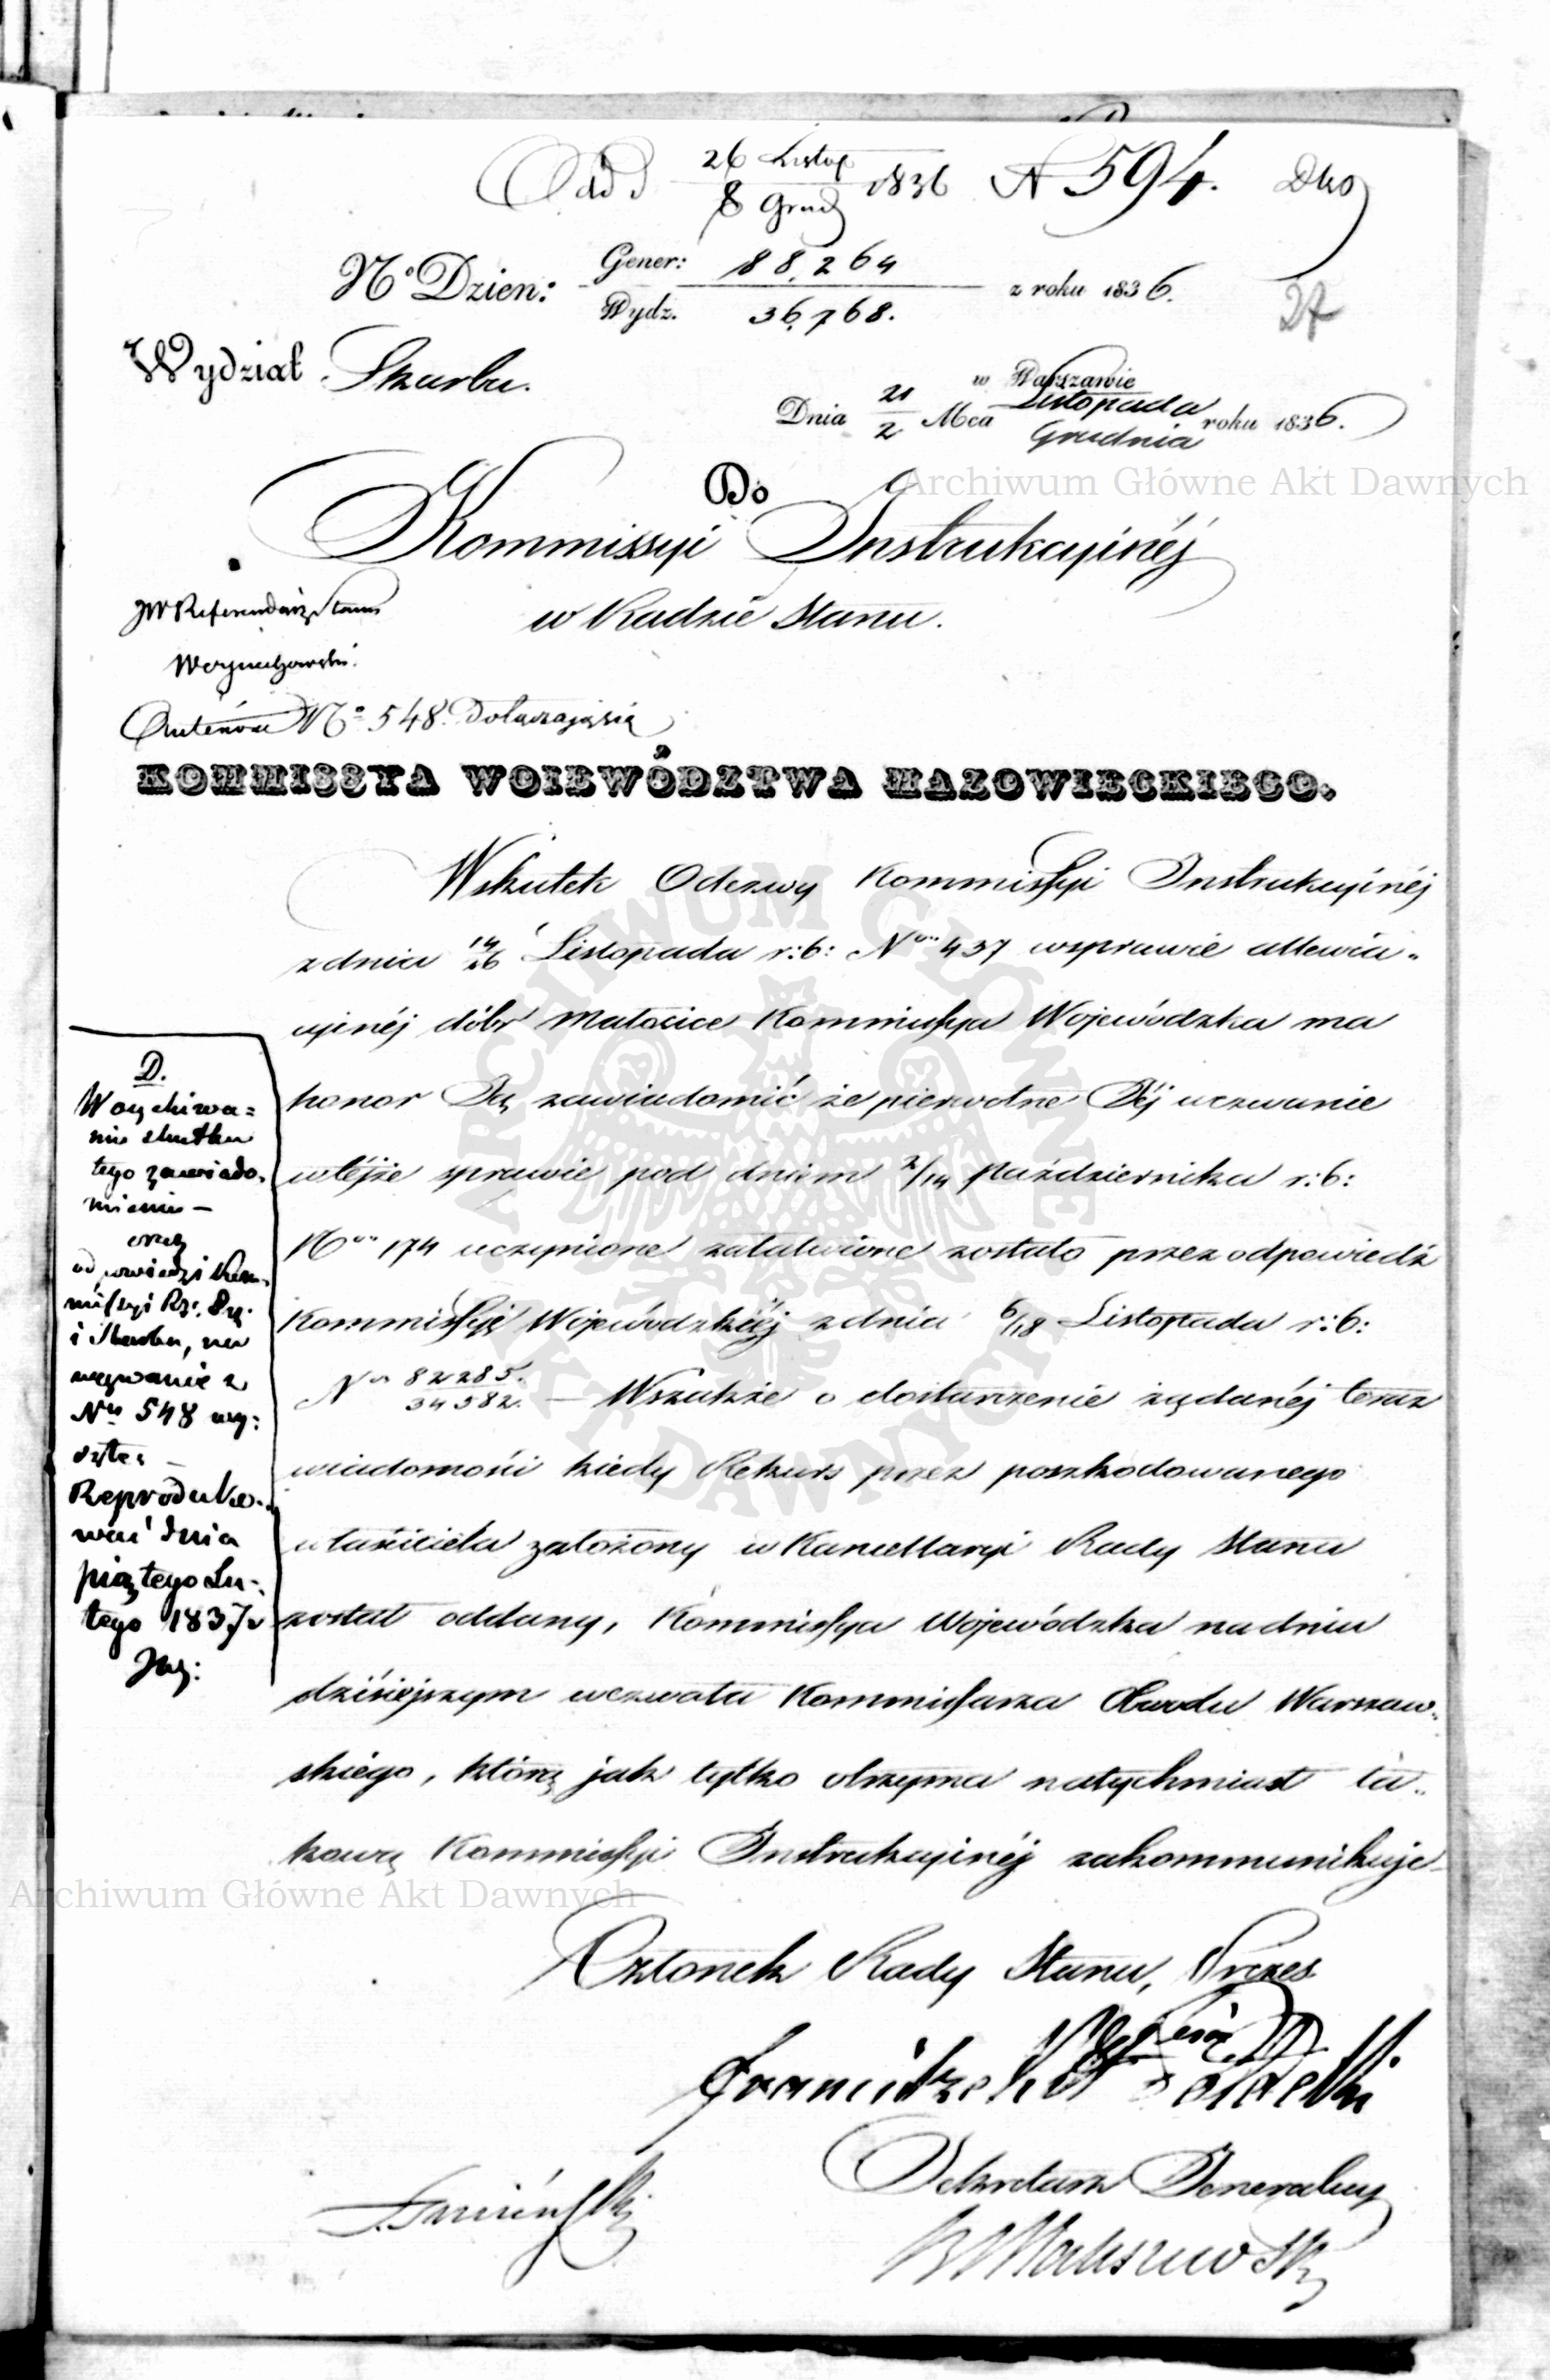 Odd d 26 Listop / 8 Grud 1836 N 594. Dko
N° Dzien: Gener: 88,264 / Wydz. 36,768. z roku 1836.
27
Wydział Skarbu.
w Warszawie
Dnia 21/2 Mca Listopada / Grudnia roku 1836.
Do
Kommissyi Instrukcyinéj
w Radzie Stanu.
JW Referendarz Stanu
Woyciechowski.
N° 548. Dołączająsię
KOMMISSYA WOIEWÓDZTWA MAZOWIECKIEGO.
Wskutek Odezwy Kommissyi Instrukcyinéj
z dnia 14/26 Listopada r: b: Nro 437 wsprawie allewia-
cyinéj dóbr Małocice Kommissya Wojewódzka ma
honor Ją zawiadomić że pierwotne Jéj wezwanie
wtéjże sprawie pod dniem 2/14 Października r: b:
Nro 174 uczynione załatwione zostało przez odpowiedź
Kommissyi Wojewódzkiéj z dnia 6/18 Listopada r: b:
Nro 82285. / 34582. — Wszakże o dostarczenie żądanéj teraz
wiadomości kiedy Rekurs przez poszkodowanego
właściciela założony w Kancellaryi Rady Stanu
został oddany, Kommissya Wojewódzka na dniu
dzisiejszym wezwała Kommissarza Obwodu Warszaw-
skiego, którą jak tylko otrzyma natychmiast ta-
kową Kommissyi Instrukcyinéj zakommunikuje
D.
Woczekiwa=
niu skutku
tego zawiado-
mienia —
oraz
odpowiedzi Kom-
missyi Rz. Prz.
i Skarbu, na
wezwanie z
Nru 548 wy:
szłe: —
Reproduko-
wać dnia
piątego Lu-
tego 1837 r
Członek Rady Stanu, Prezes
Sekretarz Jeneralny
Archiwum Główne Akt Dawnych
Archiwum Główne Akt Dawnych
ARCHIWUM GŁÓWNE AKT DAWNYCH